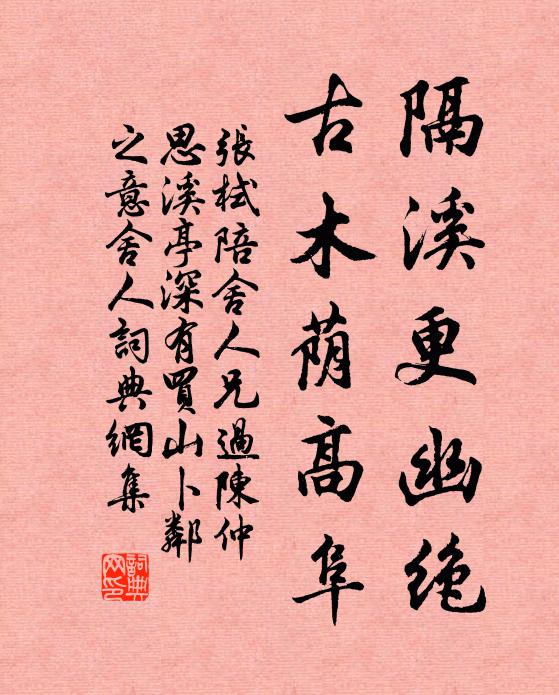 隔溪更幽绝
古木荫高阜
張栻陪舍人兄過陳仲
思溪亭深有買山卜鄰
之意舍人詞典網集
詞典
网印